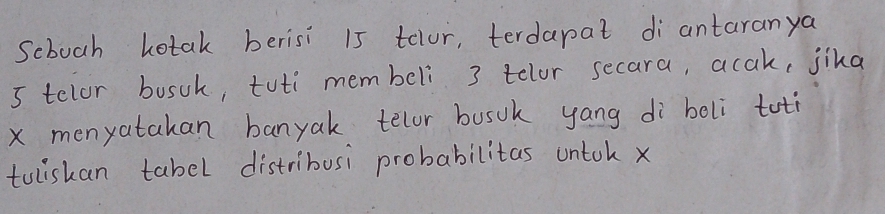 Sebuah kotak berisi 15 telur, terdapat di antaranya
5 telur busuk, tuti membeli 3 telur secara, acak, jika
x menyatakan banyak telur busuk yang di beli tuti
tuliskan tabel distribusi probabilitas untuk x